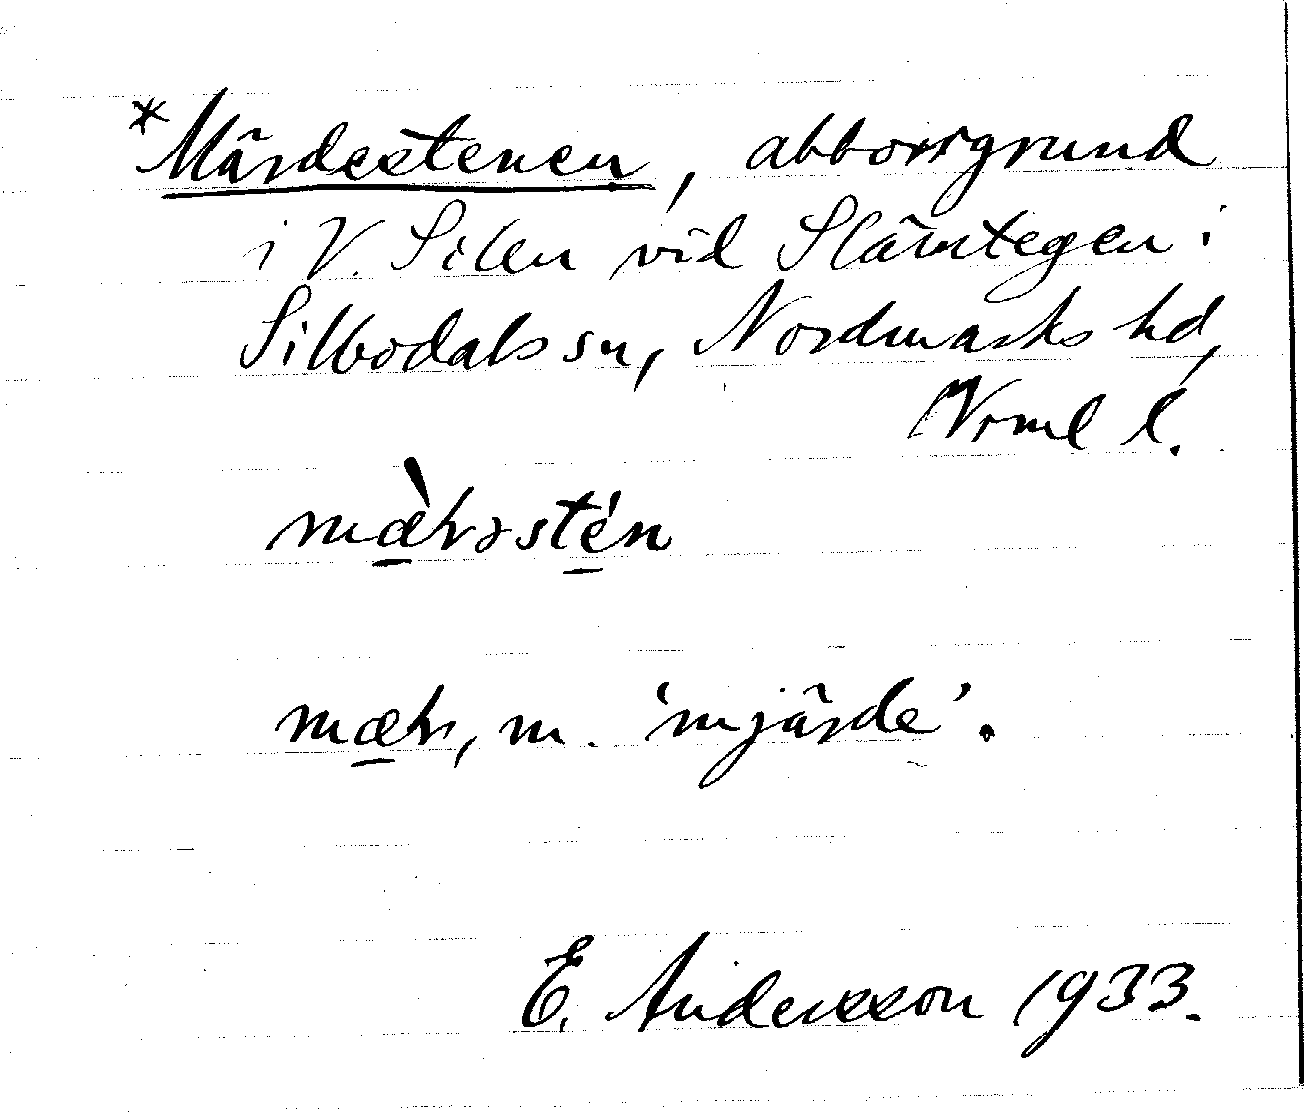 *Märdestenen, abborrgrund
i V. Silen vid Slämtegen i
Silbodals sn, Nordmarks hd,
Vrml l.
mæ̀ḷəstén
mæḷ, m. 'mjärde'.
E. Andersson 1933.